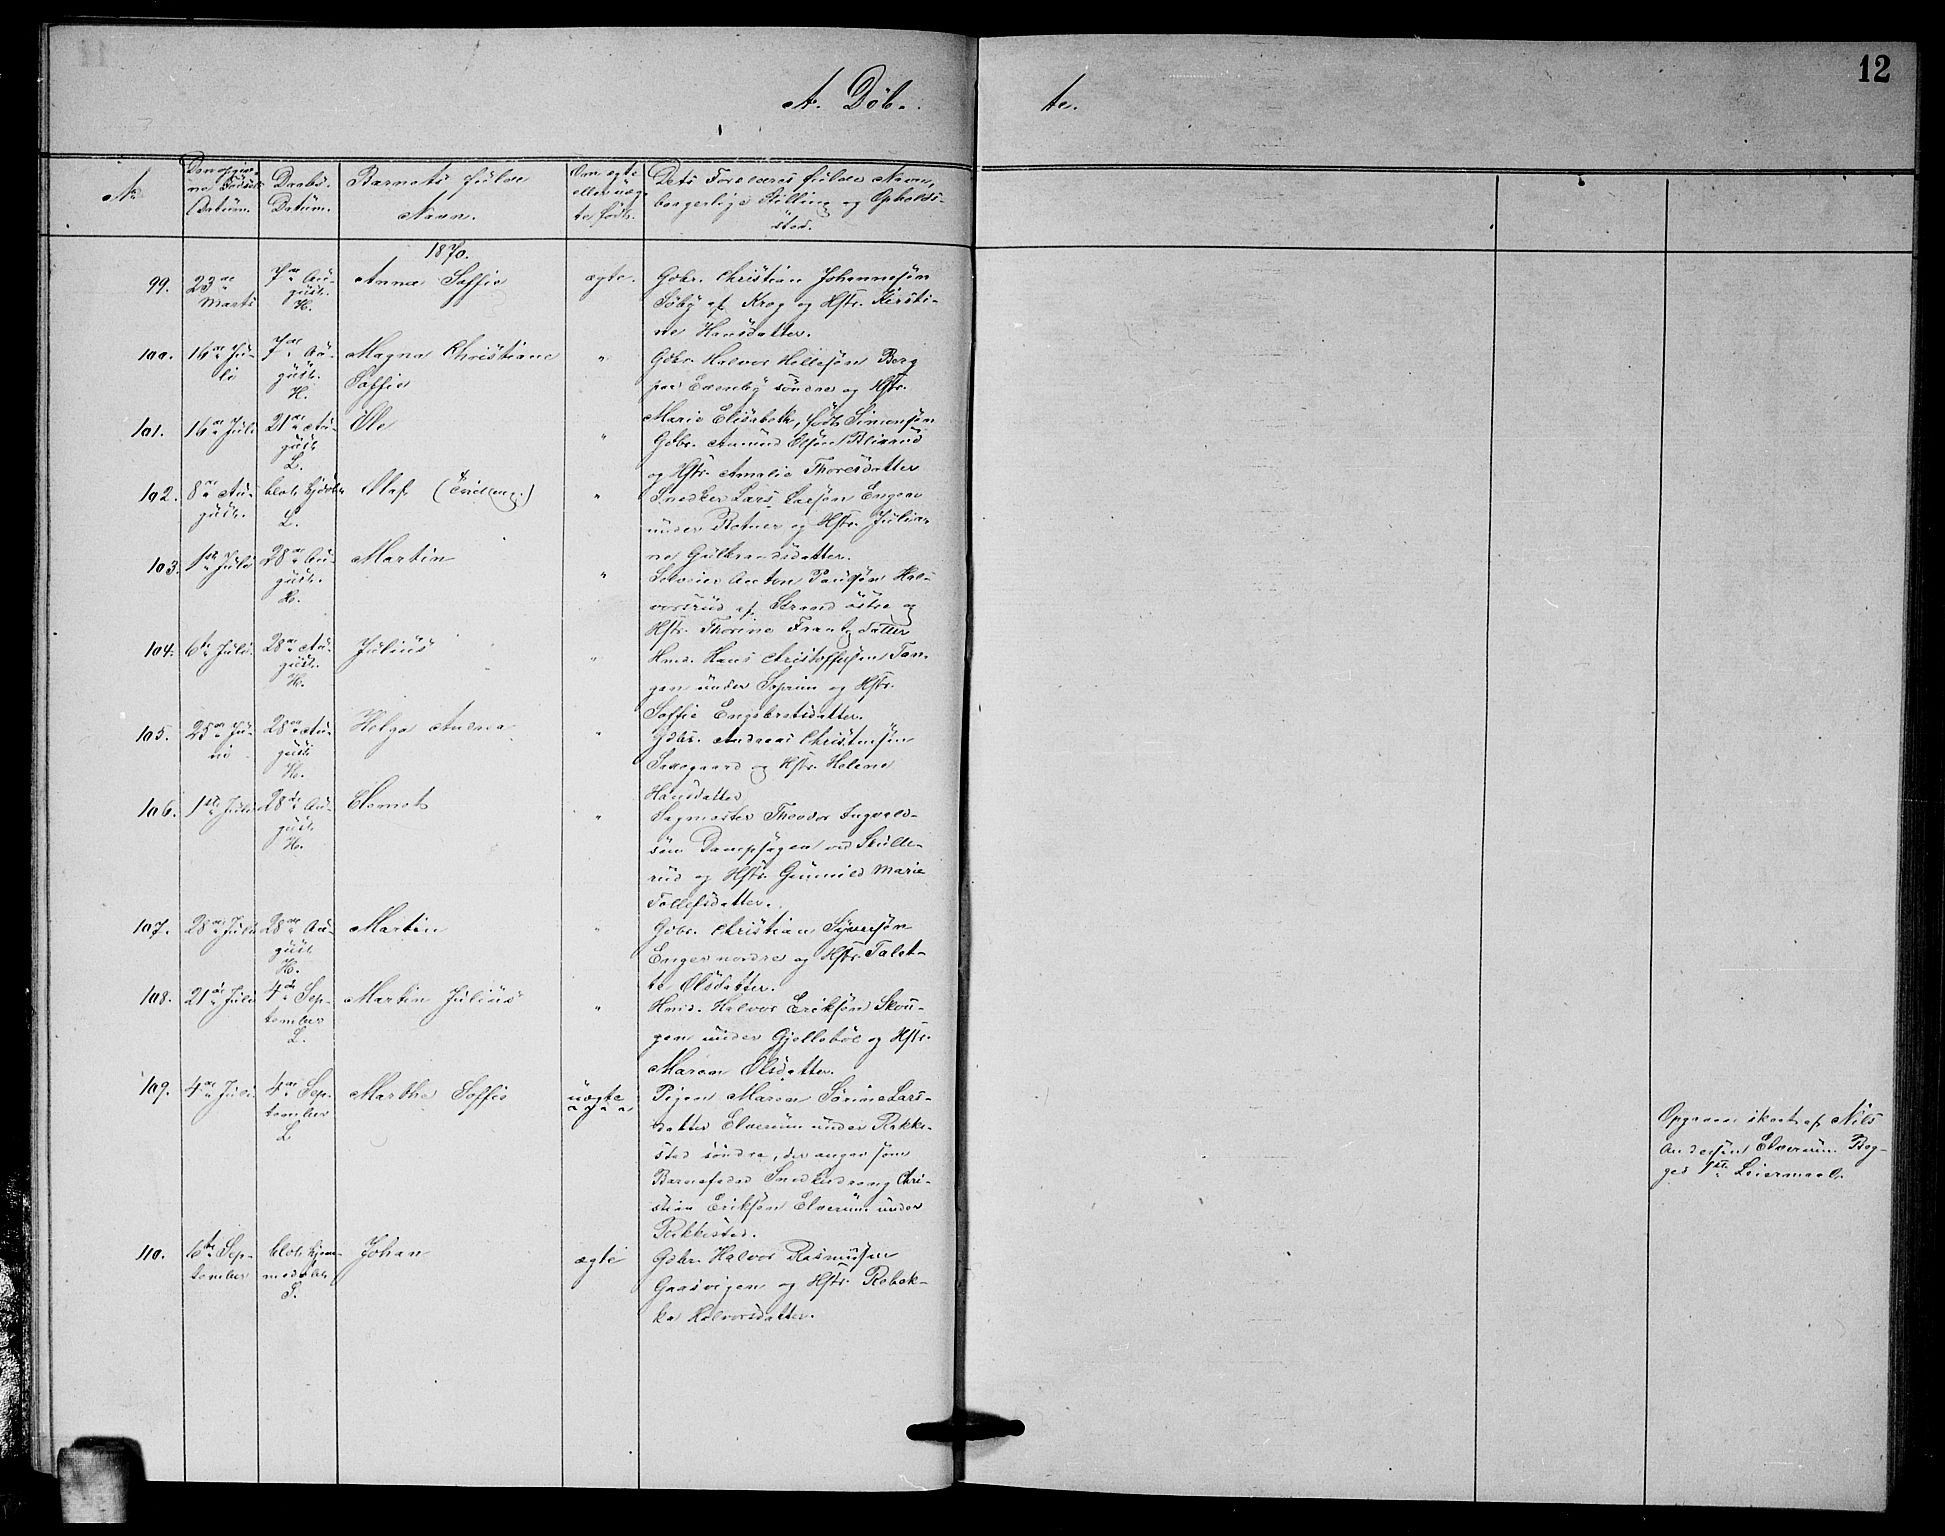 12
A. Døb-
te.
No
Den opgiv-
ne Fødsels
Datum.
Daabs-
Datum.
Barnets fulde
Navn.
Om ægte
eller uæg-
te født.
Dets Forældres fulde Navn,
borgerlige Stilling og Opholds-
sted.
1870.
99.
23de
Marts
7de Au-
gust.
H.
Anna Soffie
ægte.
Gdbr. Christian Johannesøn
Søby af Krog og Hstr. Kirsti-
ne Hansdatter.
100.
16de Ju-
li
7de Au-
gust.
H.
Magna Christiane
Soffie
"
Gdbr. Halvor Hellesøn Berg
paa Evenby søndre og Hstr.
Marie Elisabeth, født Simonsøn
101.
16de Juli
21de Au-
gust.
L.
Ole
"
Gdbr. Amund Olsøn Blixrud
og Hstr. Amalie Thoresdatter
102.
8de Au-
gust.
blot hjdøbt
L.
Olaf (Tvilling.)
"
Snedker Lars Larsøn Engen
under Rotner og Hstr. Julian-
ne Gulbrandsdatter.
103.
1ste Juli
28de Au-
gust.
H.
Martin
"
Selveier Anton Paulsøn Hal-
vorsrud af Strand østre og
Hstr. Thorine Frantzdatter
104.
6te Juli.
28de Au-
gust.
H.
Julius
"
Hmd. Hans Christoffersen Tan-
gen under Soprim og Hstr.
Soffie Engebretsdatter.
105.
25de Ju-
ni
28de Au-
gust
H.
Helga Anena
"
Gdbr. Andreas Christensøn
Saxegaard og Hstr. Helene
Hansdatter
106.
1ste Juli
28de Au-
gust
H.
Clemet
"
Sagmester Theodor Ingvald-
søn Dampsagen ved Skulle-
rud og Hstr. Gunnild Marie
Tollefsdatter.
107.
28de Juli
28de Au-
gust
H.
Martin
"
Gdbr. Christian Syversøn
Enger nordre og Hstr. Talet-
te Olsdatter.
108.
21de Juli
4de Sep-
tember
L.
Martin Julius
"
Hmd. Halvor Eriksøn Skou-
gen under Gjellebøl og Hstr.
Maren Olsdatter.
109.
4de Juli
4de Sep-
tember
L.
Marthe Soffie
uægte
Pigen Maren Sørine Lars-
datter Elverum under Rakke-
stad søndre, der angav som
Barnefader Snedkerdreng Chri-
stian Eriksøn Elverum under
Rakkestad.
Opgaven skeet af Nils
Andersøn Elverum. Beg-
ges 1ste Leiermaal.
110.
6te Sep-
tember
blot hjem-
medøbt
S.
Johan
ægte
Gdbr. Halvor Rasmussen
Gaasvigen og Hstr. Rebek-
ka Halvorsdatter.